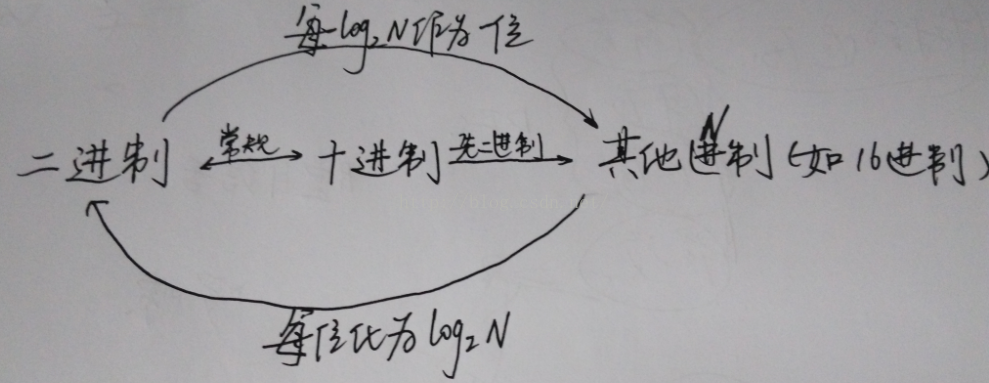 每log₂N作为一位
二进制 常规 十进制 先二进制 其他N进制(如16进制)
每位化为log₂N